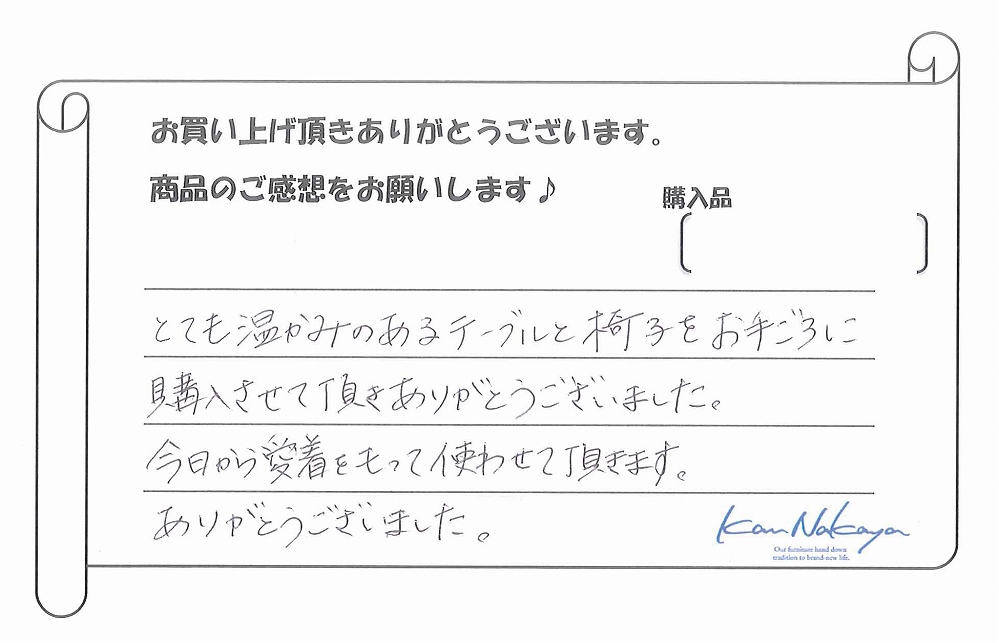 お買い上げ頂きありがとうございます。
商品のご感想をお願いします♪
購入品
とても温かみのあるテーブルと椅子をお手ごろに
購入させて頂きありがとうございました。
今日から愛着をもって使わせて頂きます。
ありがとうございました。
Kan Nakaya
Our furniture hand down
tradition to brand-new life.